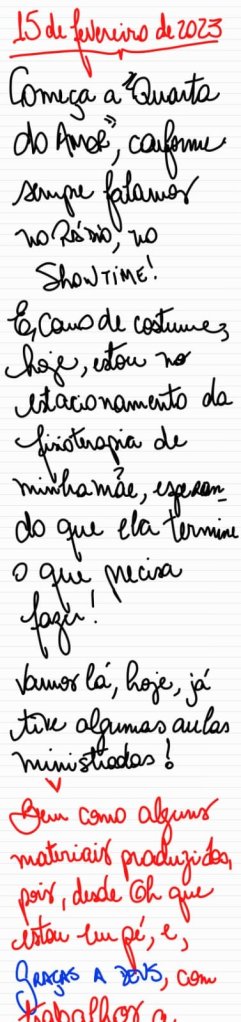 15 de fevereiro de 2023
Começa a "Quarta
do Amor", conforme
sempre falamos
no Rádio, no
SHOWTIME!
E, como de costume,
hoje, estou no
estacionamento da
fisioterapia de
minha mãe, esperan_
do que ela termine
o que precisa
fazer!
Vamos lá, hoje, já
tive algumas aulas
ministradas!
Bem como alguns
materiais produzidos,
pois, desde 6h que
estou em pé, e,
GRAÇAS A DEUS, com
trabalhos a